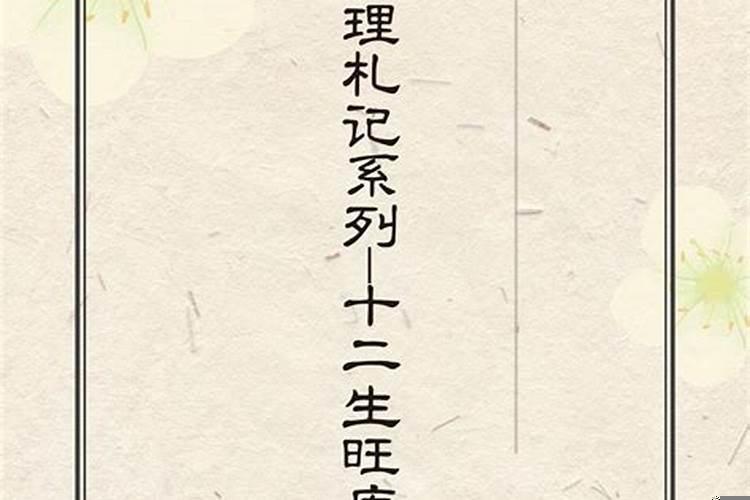 理札记系列—十二生旺